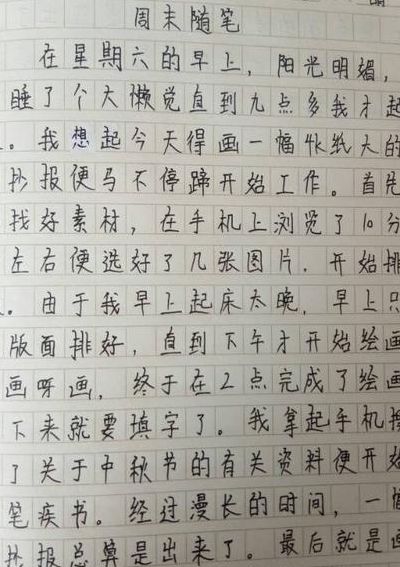 周末随笔
在星期六的早上，阳光明媚，
睡了个大懒觉直到九点多我才起
。我想起今天得画一幅4k纸大的
抄报便马不停蹄开始工作。首先
找好素材，在手机上浏览了10分
左右便选好了几张图片，开始排
。由于我早上起床太晚，早上只
版面排好，直到下午才开始绘画
画呀画，终于在2点完成了绘画
下来就要填字了。我拿起手机搜
了关于中秋节的有关资料便开始
笔疾书。经过漫长的时间，一幅
抄报总算是出来了。最后就是画